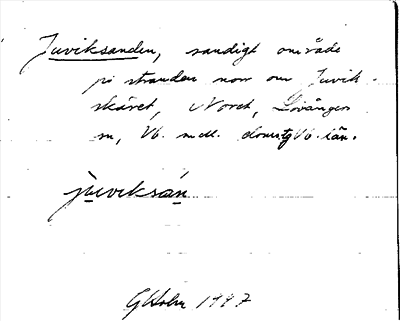 Juviksanden, sandigt område
på stranden norr om Juvik-
skäret, Noret, Lövångers
sn, Vb. mell. domstg Vb. län.
juviksán
G Holm 1997